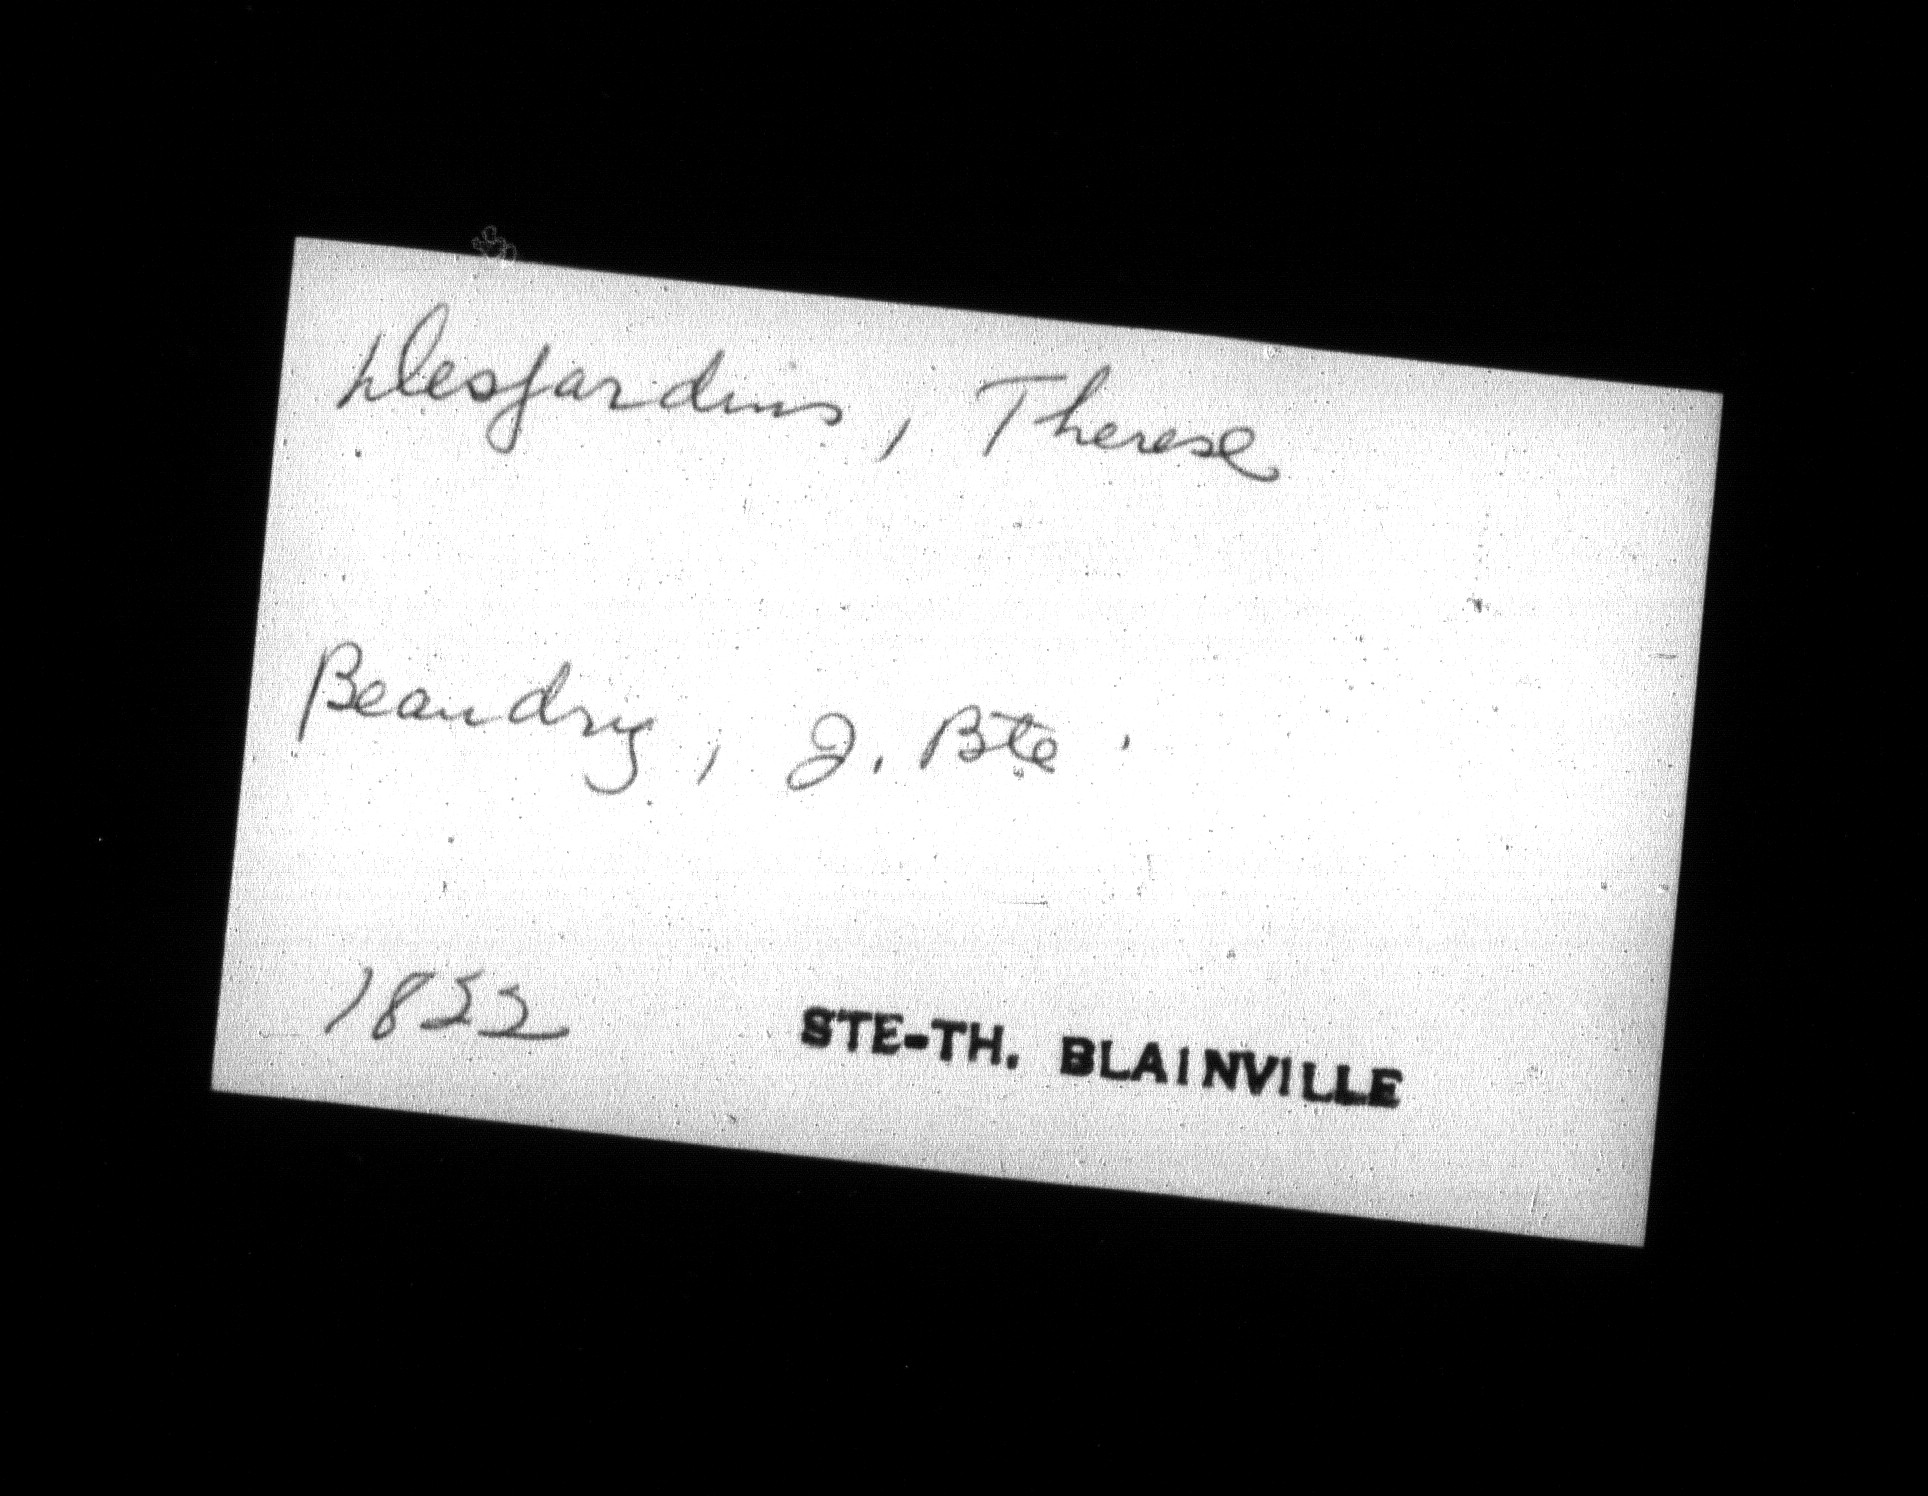 Desjardins, Therese
Beaudry, J. Bte.
1822 STE-TH. BLAINVILLE